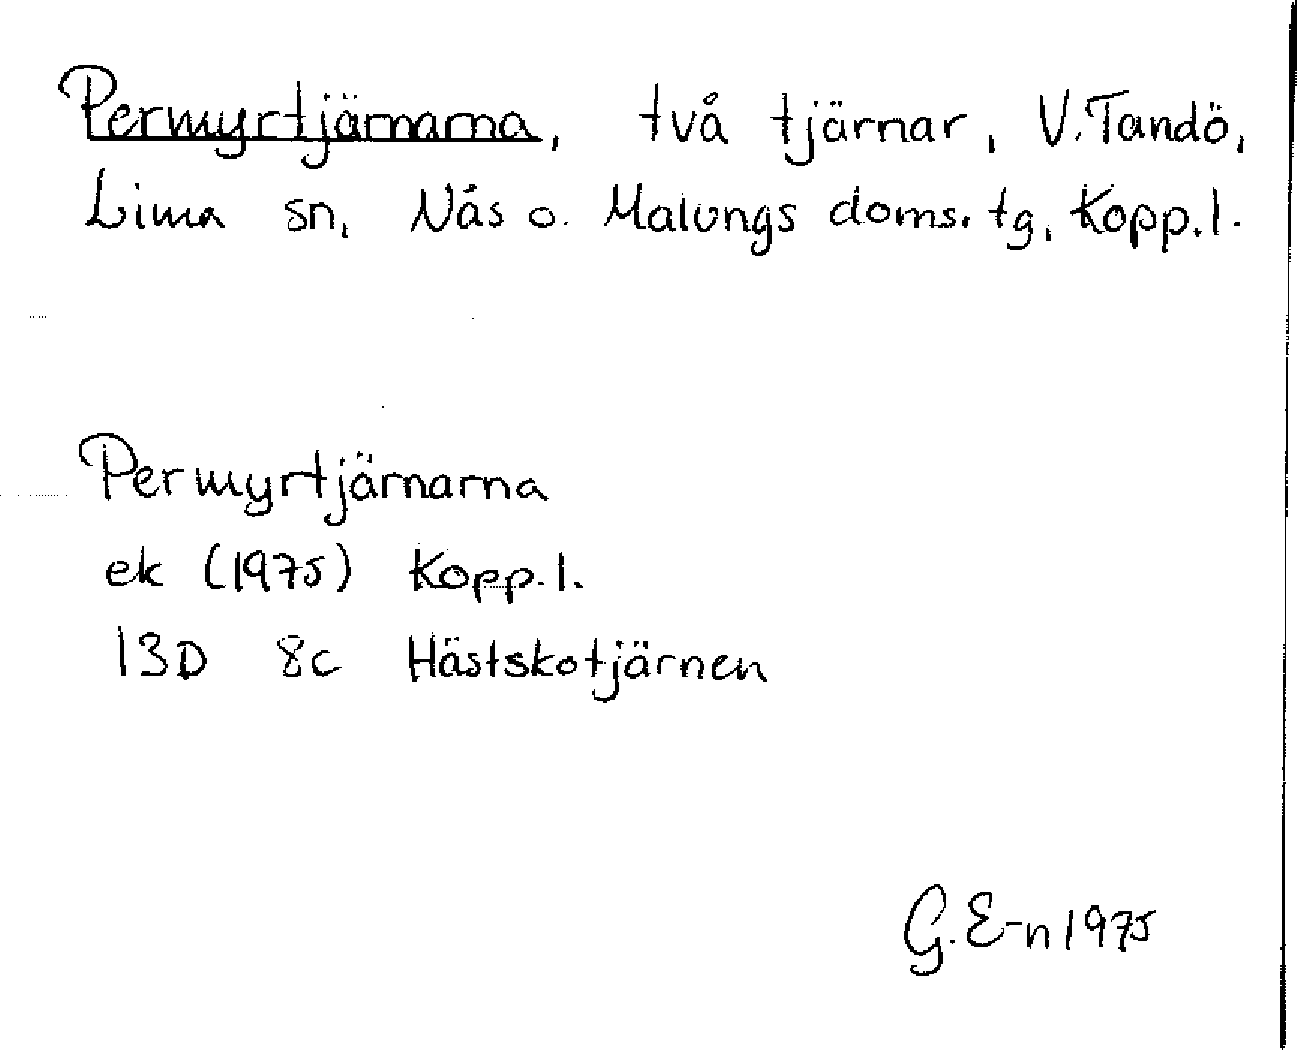 Permyrtjärnarna, två tjärnar, V. Tandö,
Lima sn, Nås o. Malungs doms. tg, Kopp. l.
Permyrtjärnarna
ek (1975) Kopp. l.
13D 8c Hästskotjärnen
G. E-n 1975